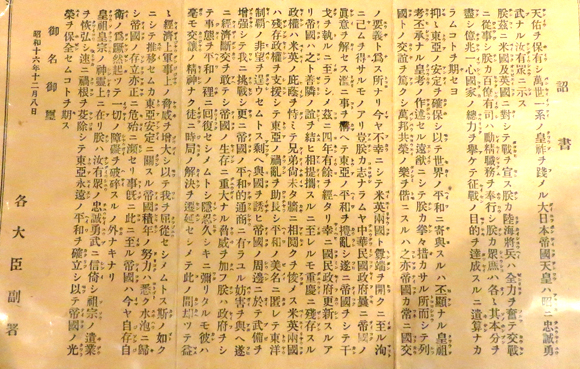 詔書
天佑ヲ保有シ萬世一系ノ皇祚ヲ踐メル大日本帝國天皇ハ昭ニ忠誠勇
武ナル汝有衆ニ示ス
朕茲ニ米國及英國ニ對シテ戰ヲ宣ス朕カ陸海將兵ハ全力ヲ奮テ交戰
ニ從事シ朕カ百僚有司ハ勵精職務ヲ奉行シ朕カ衆庶ハ各〻其ノ本分ヲ
盡シ億兆一心國家ノ總力ヲ擧ケテ征戰ノ目的ヲ達成スルニ遺算ナカ
ラムコトヲ期セヨ
抑〻東亞ノ安定ヲ確保シ以テ世界ノ平和ニ寄與スルハ丕顯ナル皇祖
考丕承ナル皇考ノ作述セル遠猷ニシテ朕カ拳々措カサル所而シテ列
國トノ交誼ヲ篤クシ萬邦共榮ノ樂ヲ偕ニスルハ之亦帝國カ常ニ國交
ノ要義ト爲ス所ナリ今ヤ不幸ニシテ米英兩國ト釁端ヲ開クニ至ル洵
ニ已ムヲ得サルモノアリ豈朕カ志ナラムヤ中華民國政府曩ニ帝國ノ
眞意ヲ解セス濫ニ事ヲ構ヘテ東亞ノ平和ヲ攪亂シ遂ニ帝國ヲシテ干
戈ヲ執ルニ至ラシメ茲ニ四年有餘ヲ經タリ幸ニ國民政府更新スルア
リ帝國ハ之ト善隣ノ誼ヲ結ヒ相提携スルニ至レルモ重慶ニ殘存スル
政權ハ米英ノ庇蔭ヲ恃ミテ兄弟尚未タ牆ニ相鬩クヲ悛メス米英兩國
ハ殘存政權ヲ支援シテ東亞ノ禍亂ヲ助長シ平和ノ美名ニ匿レテ東洋
制覇ノ非望ヲ逞ウセムトス剩ヘ與國ヲ誘ヒ帝國ノ周邊ニ於テ武備ヲ
增強シテ我ニ挑戰シ更ニ帝國ノ平和的通商ニ有ラユル妨害ヲ與ヘ遂
ニ經濟斷交ヲ敢テシ帝國ノ生存ニ重大ナル脅威ヲ加フ朕ハ政府ヲシ
テ事態ヲ平和ノ裡ニ回復セシメムトシ隱忍久シキニ彌リタルモ彼ハ
毫モ交讓ノ精神ナク徒ニ時局ノ解決ヲ遷延セシメテ此ノ間却ツテ益
〻經濟上軍事上ノ脅威ヲ增大シ以テ我ヲ屈從セシメムトス斯ノ如ク
ニシテ推移セムカ東亞安定ニ關スル帝國積年ノ努力ハ悉ク水泡ニ歸
シ帝國ノ存立亦正ニ危殆ニ瀕セリ事旣ニ此ニ至ル帝國ハ今ヤ自存自
衞ノ爲蹶然起ツテ一切ノ障礙ヲ破碎スルノ外ナキナリ
皇祖皇宗ノ神靈上ニ在リ朕ハ汝有衆ノ忠誠勇武ニ信倚シ祖宗ノ遺業
ヲ恢弘シ速ニ禍根ヲ芟除シテ東亞永遠ノ平和ヲ確立シ以テ帝國ノ光
榮ヲ保全セムコトヲ期ス
御名御璽
昭和十六年十二月八日
各大臣副署